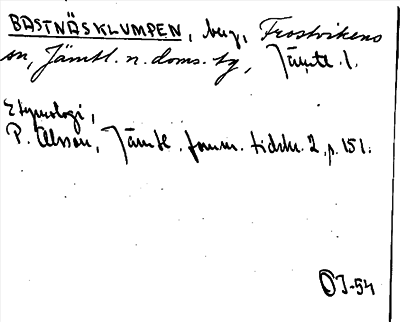 BASTNÄSKLUMPEN, berg, Frostvikens
sn, Jämtl. n. doms. tg, Jämtl. l.
Etymologi,
P. Olsson, Jämtl. fornm. tidskr. 2, p. 151.
OJ-54